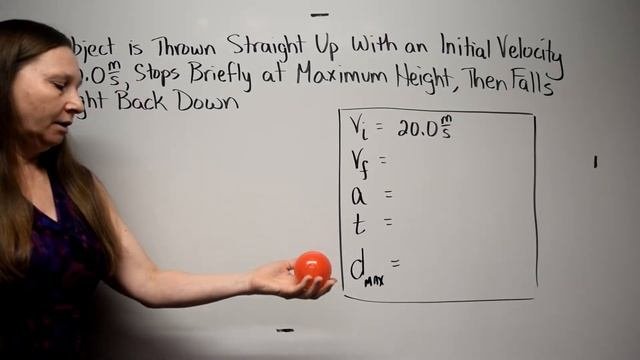 bject is Thrown Straight Up With an Initial Velocity
.0 m/s, Stops Briefly at Maximum Height, Then Falls
ght Back Down
Vi = 20.0 m/s
Vf =
a =
t =
dMAX =